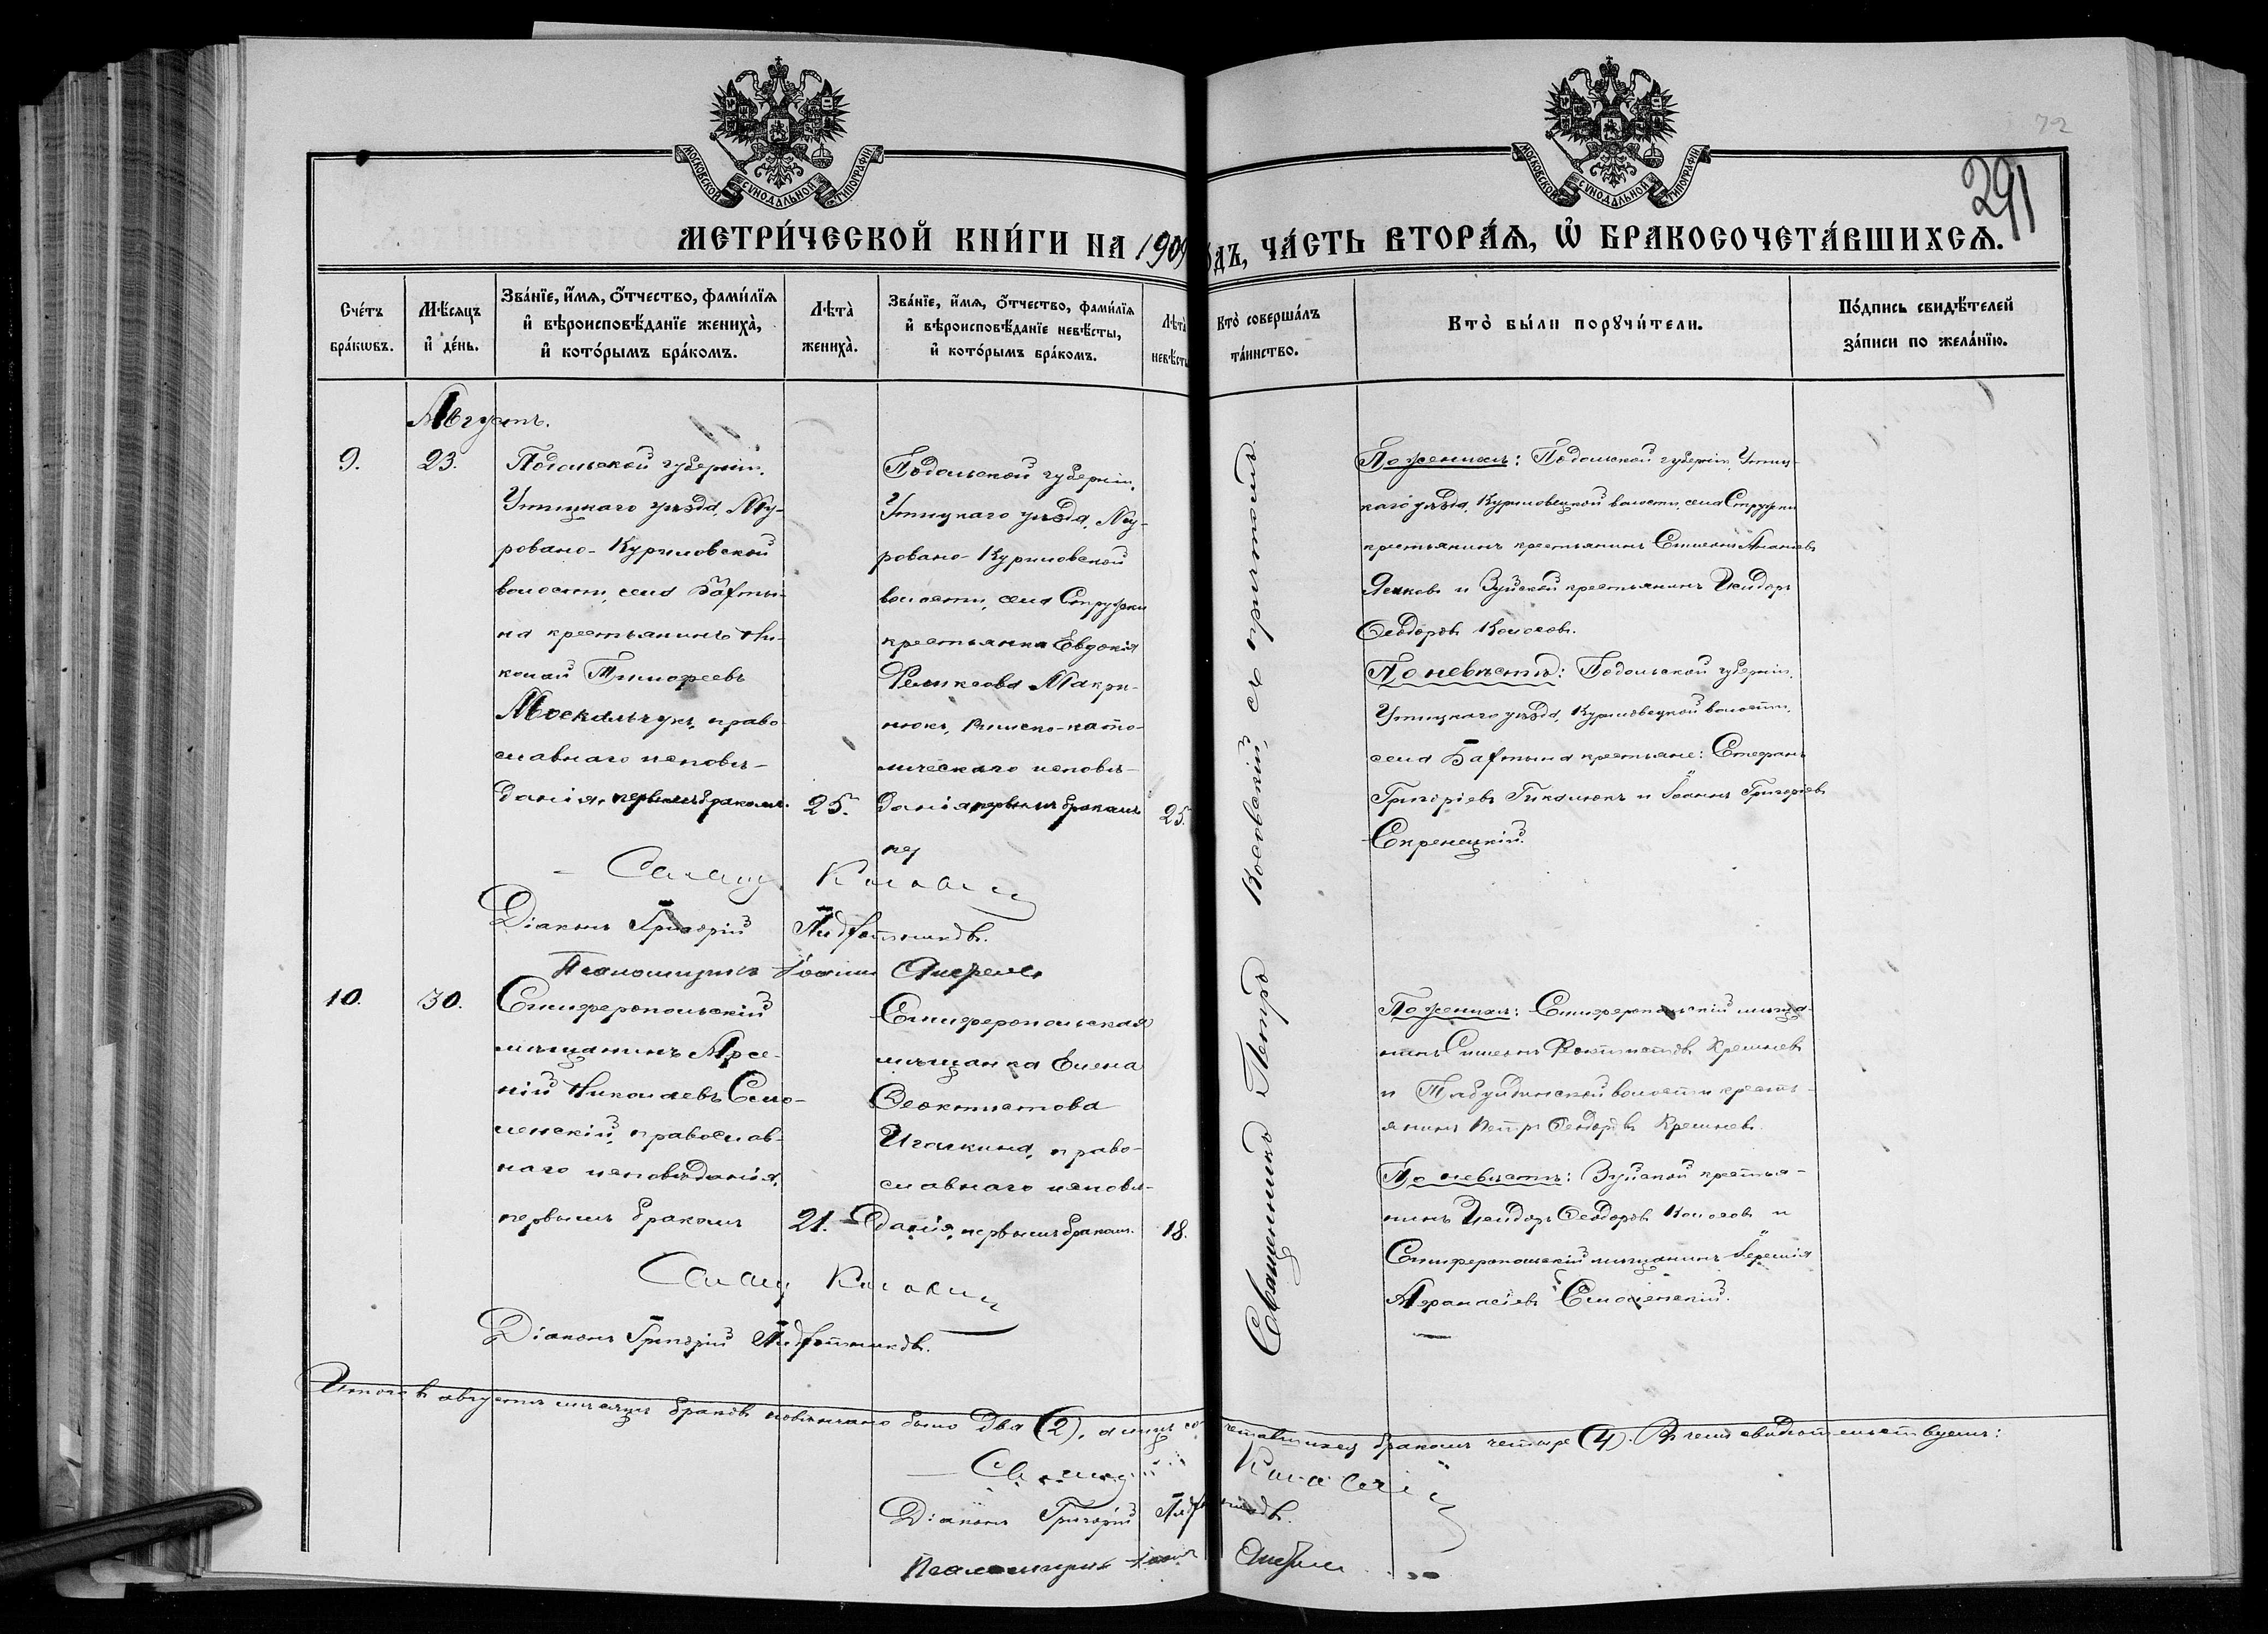 МОСКОВСКОЙ СѴНОДАЛЬНОЙ ТИПОГРАФІИ
МОСКОВСКОЙ СѴНОДАЛЬНОЙ ТИПОГРАФІИ
72
291
МЕТРИ́ЧЕСКОЙ КНИ́ГИ НА 1909 ѻдъ, ЧА́СТЬ ВТОРА́Ѧ, Ѡ҆ БРАКОСОЧЕТА́ВШИХСѦ.
Сче́тъ
бра́кѡвъ.
Мѣ́сѧцъ
и҆ де́нь.
Зва́нїе, и҆́мѧ, ѻ҆́тчество, фами́лїѧ
и҆ вѣроисповѣ́данїе жениха̀,
и҆ кото́рымъ бра́комъ.
Лѣта̀
жениха̀.
Зва́нїе, и҆́мѧ, ѻ҆́тчество, фами́лїѧ
и҆ вѣроисповѣ́данїе невѣ́сты,
и҆ кото́рымъ бра́комъ.
Лѣта̀
невѣ́сты
Кто̀ соверша́лъ
та́инство.
Кто̀ бы́ли порꙋчи́тели.
По́дпись свидѣ́телей
за́писи по жела́нїю.
Августъ.
9.
23.
Подольской губерніи,
Ушицкаго уѣзда, Му-
ровано-Куриловской
волости, села Бахты-
на крестьянинъ Ни-
колай Тимофеевъ
Москальчукъ, право-
славнаго исповѣ-
данія, первымъ бракомъ.
25.
Подольской губерніи,
Ушицкаго уѣзда, Му-
ровано-Куриловской
волости, села Стружки
крестьянка Евдокія
Феликсова Макри-
нюкъ, Римско-като-
лическаго исповѣ-
данія первымъ бракомъ
25.
По женихѣ: Подольской губерніи, Ушиц-
каго уѣзда, Куриловецкой волости, села Стружки
крестьянинъ крестьянинъ Симеонъ Ананіевъ
и Зуйской крестьянинъ Исидоръ
Ѳеодоровъ Колосовъ.
По невѣстѣ: Подольской губерніи,
Ушицкаго уѣзда, Куриловецкой волости,
села Бахтына крестьяне: Стефанъ
Григоріевъ и Іоаннъ Григоріевъ
Скренецкій.
Священникъ Петръ Косовскій, съ причтомъ.
Діаконъ Григорій
Псаломщикъ Іоаннъ
10.
30.
Симферопольскій
мѣщанинъ Арсе-
ній Николаевъ Смо-
ленскій, православ-
наго исповѣданія,
первымъ бракомъ
21.
Симферопольская
мѣщанка Елена
Ѳеоктистова
Игалкина, право-
славнаго исповѣ-
данія, первымъ бракомъ.
18.
По женихѣ: Симферопольскій мѣща-
нинъ Симеонъ Ѳеоктистовъ
и волости кресть-
янинъ Петръ Ѳеодоровъ
По невѣстѣ: Зуйской крестья-
нинъ Исидоръ Ѳеодоровъ Колосовъ и
Симферопольскій мѣщанинъ Іеремія
Афанасіевъ Смоленскій.
Діаконъ Григорій
Итого въ августѣ мѣсяцѣ браковъ повѣнчано было два (2), а лицъ сочетавшихся бракомъ четыре (4). Въ чемъ свидѣтельствуемъ:
Діаконъ Григорій
Псаломщикъ Іоаннъ